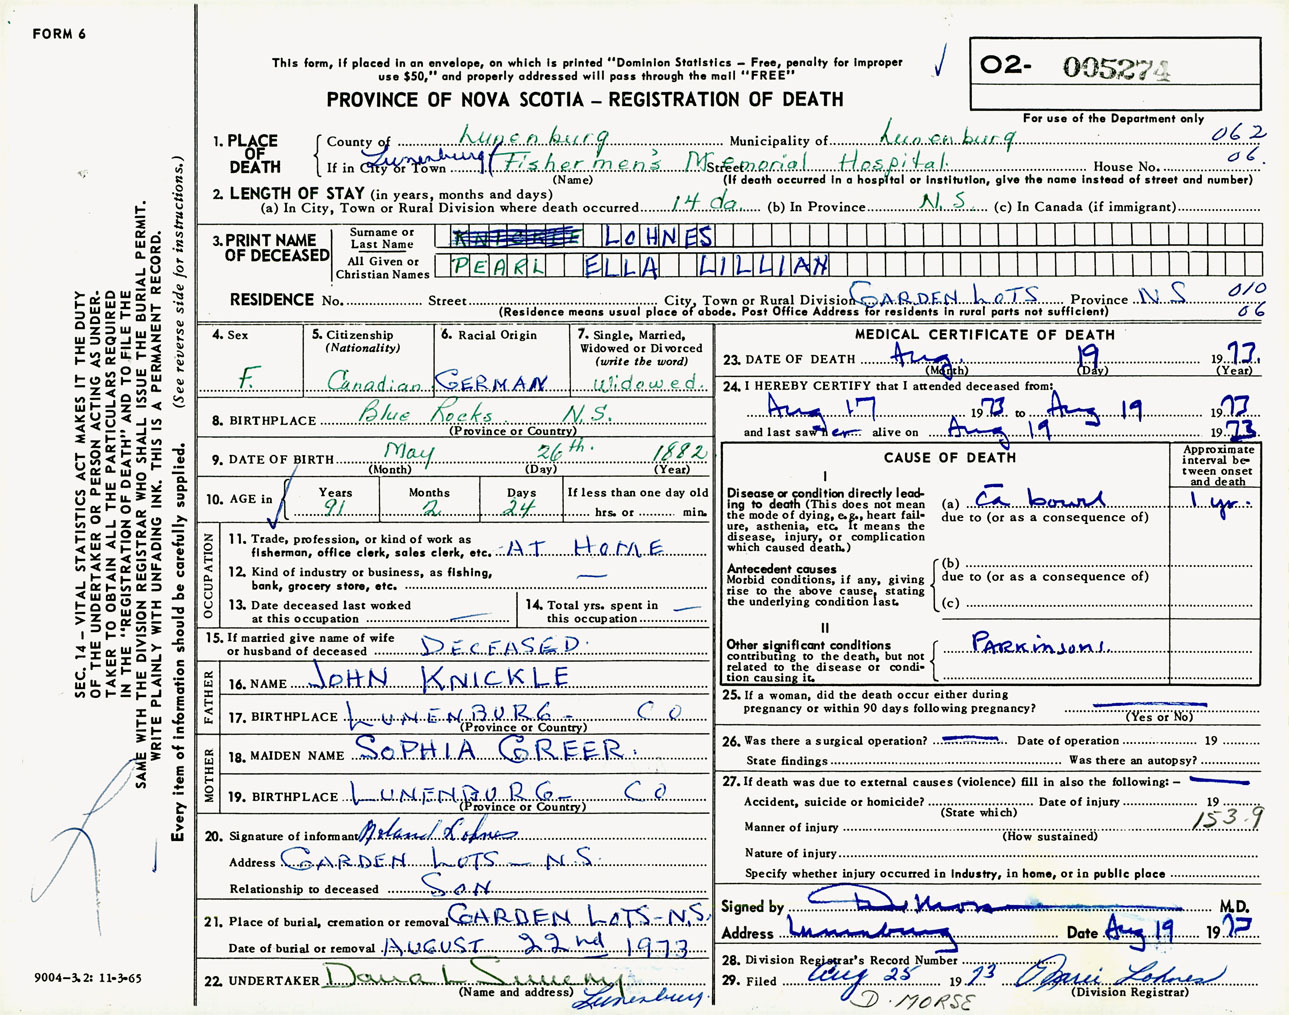 FORM 6
This form, if placed in an envelope, on which is printed "Dominion Statistics – Free, penalty for improper
use $50," and properly addressed will pass through the mail "FREE"
PROVINCE OF NOVA SCOTIA – REGISTRATION OF DEATH
02- 005274
For use of the Department only
062
06.
1. PLACE OF DEATH
County of Lunenburg Municipality of Lunenburg
If in City or Town Lunenburg Fishermen's Memorial Hospital. Street House No.
(Name) (If death occurred in a hospital or institution, give the name instead of street and number)
2. LENGTH OF STAY (in years, months and days)
(a) In City, Town or Rural Division where death occurred 14 da. (b) In Province N.S. (c) In Canada (if immigrant)
3. PRINT NAME OF DECEASED
Surname or Last Name LOHNES
All Given or Christian Names PEARL ELLA LILLIAN
RESIDENCE No. Street City, Town or Rural Division GARDEN LOTS Province N.S 010
(Residence means usual place of abode. Post Office Address for residents in rural parts not sufficient) 06
4. Sex
F.
5. Citizenship
(Nationality)
Canadian
6. Racial Origin
GERMAN
7. Single, Married,
Widowed or Divorced
(write the word)
Widowed.
8. BIRTHPLACE Blue Rocks N.S.
(Province or Country)
9. DATE OF BIRTH May 26th. 1882
(Month) (Day) (Year)
10. AGE in
Years 91
Months 2
Days 24
If less than one day old
hrs. or min.
OCCUPATION
11. Trade, profession, or kind of work as
fisherman, office clerk, sales clerk, etc. AT HOME
12. Kind of industry or business, as fishing,
bank, grocery store, etc. —
13. Date deceased last worked
at this occupation —
14. Total yrs. spent in
this occupation —
15. If married give name of wife
or husband of deceased DECEASED.
FATHER
16. NAME JOHN KNICKLE
17. BIRTHPLACE LUNENBURG – CO
(Province or Country)
MOTHER
18. MAIDEN NAME SOPHIA GREER.
19. BIRTHPLACE LUNENBURG – CO
(Province or Country)
20. Signature of informant Roland Lohnes
Address GARDEN LOTS – N.S.
Relationship to deceased SON
21. Place of burial, cremation or removal GARDEN LOTS-N.S.
Date of burial or removal AUGUST 22nd 1973
22. UNDERTAKER Dana L Sweeny
(Name and address) Lunenburg.
MEDICAL CERTIFICATE OF DEATH
23. DATE OF DEATH Aug. 19 1973.
(Month) (Day) (Year)
24. I HEREBY CERTIFY that I attended deceased from:
Aug 17 1973 to Aug 19 1973
and last saw her alive on Aug 19 1973
CAUSE OF DEATH
Approximate
interval be-
tween onset
and death
I
Disease or condition directly lead-
ing to death (This does not mean
the mode of dying, e.g., heart fail-
ure, asthenia, etc. It means the
disease, injury, or complication
which caused death.)
(a) Ca bowel 1 yr.
due to (or as a consequence of)
Antecedent causes
Morbid conditions, if any, giving
rise to the above cause, stating
the underlying condition last.
(b)
due to (or as a consequence of)
(c)
II
Other significant conditions
contributing to the death, but not
related to the disease or condi-
tion causing it.
PARKinsons.
25. If a woman, did the death occur either during
pregnancy or within 90 days following pregnancy? —
(Yes or No)
26. Was there a surgical operation? — Date of operation 19
State findings Was there an autopsy?
27. If death was due to external causes (violence) fill in also the following: – —
Accident, suicide or homicide? Date of injury 19
(State which)
153.9
Manner of injury
(How sustained)
Nature of injury
Specify whether injury occurred in industry, in home, or in public place
Signed by D. Morse M.D.
Address Lunenburg Date Aug 19 1973
28. Division Registrar's Record Number
29. Filed Aug 25 1973 Lohnes
(Division Registrar)
D. MORSE
SEC. 14 – VITAL STATISTICS ACT MAKES IT THE DUTY
OF THE UNDERTAKER OR PERSON ACTING AS UNDER-
TAKER TO OBTAIN ALL THE PARTICULARS REQUIRED
IN THE "REGISTRATION OF DEATH" AND TO FILE THE
SAME WITH THE DIVISION REGISTRAR WHO SHALL ISSUE THE BURIAL PERMIT.
WRITE PLAINLY WITH UNFADING INK. THIS IS A PERMANENT RECORD.
Every item of information should be carefully supplied. (See reverse side for instructions.)
9004–3.2: 11-3-65